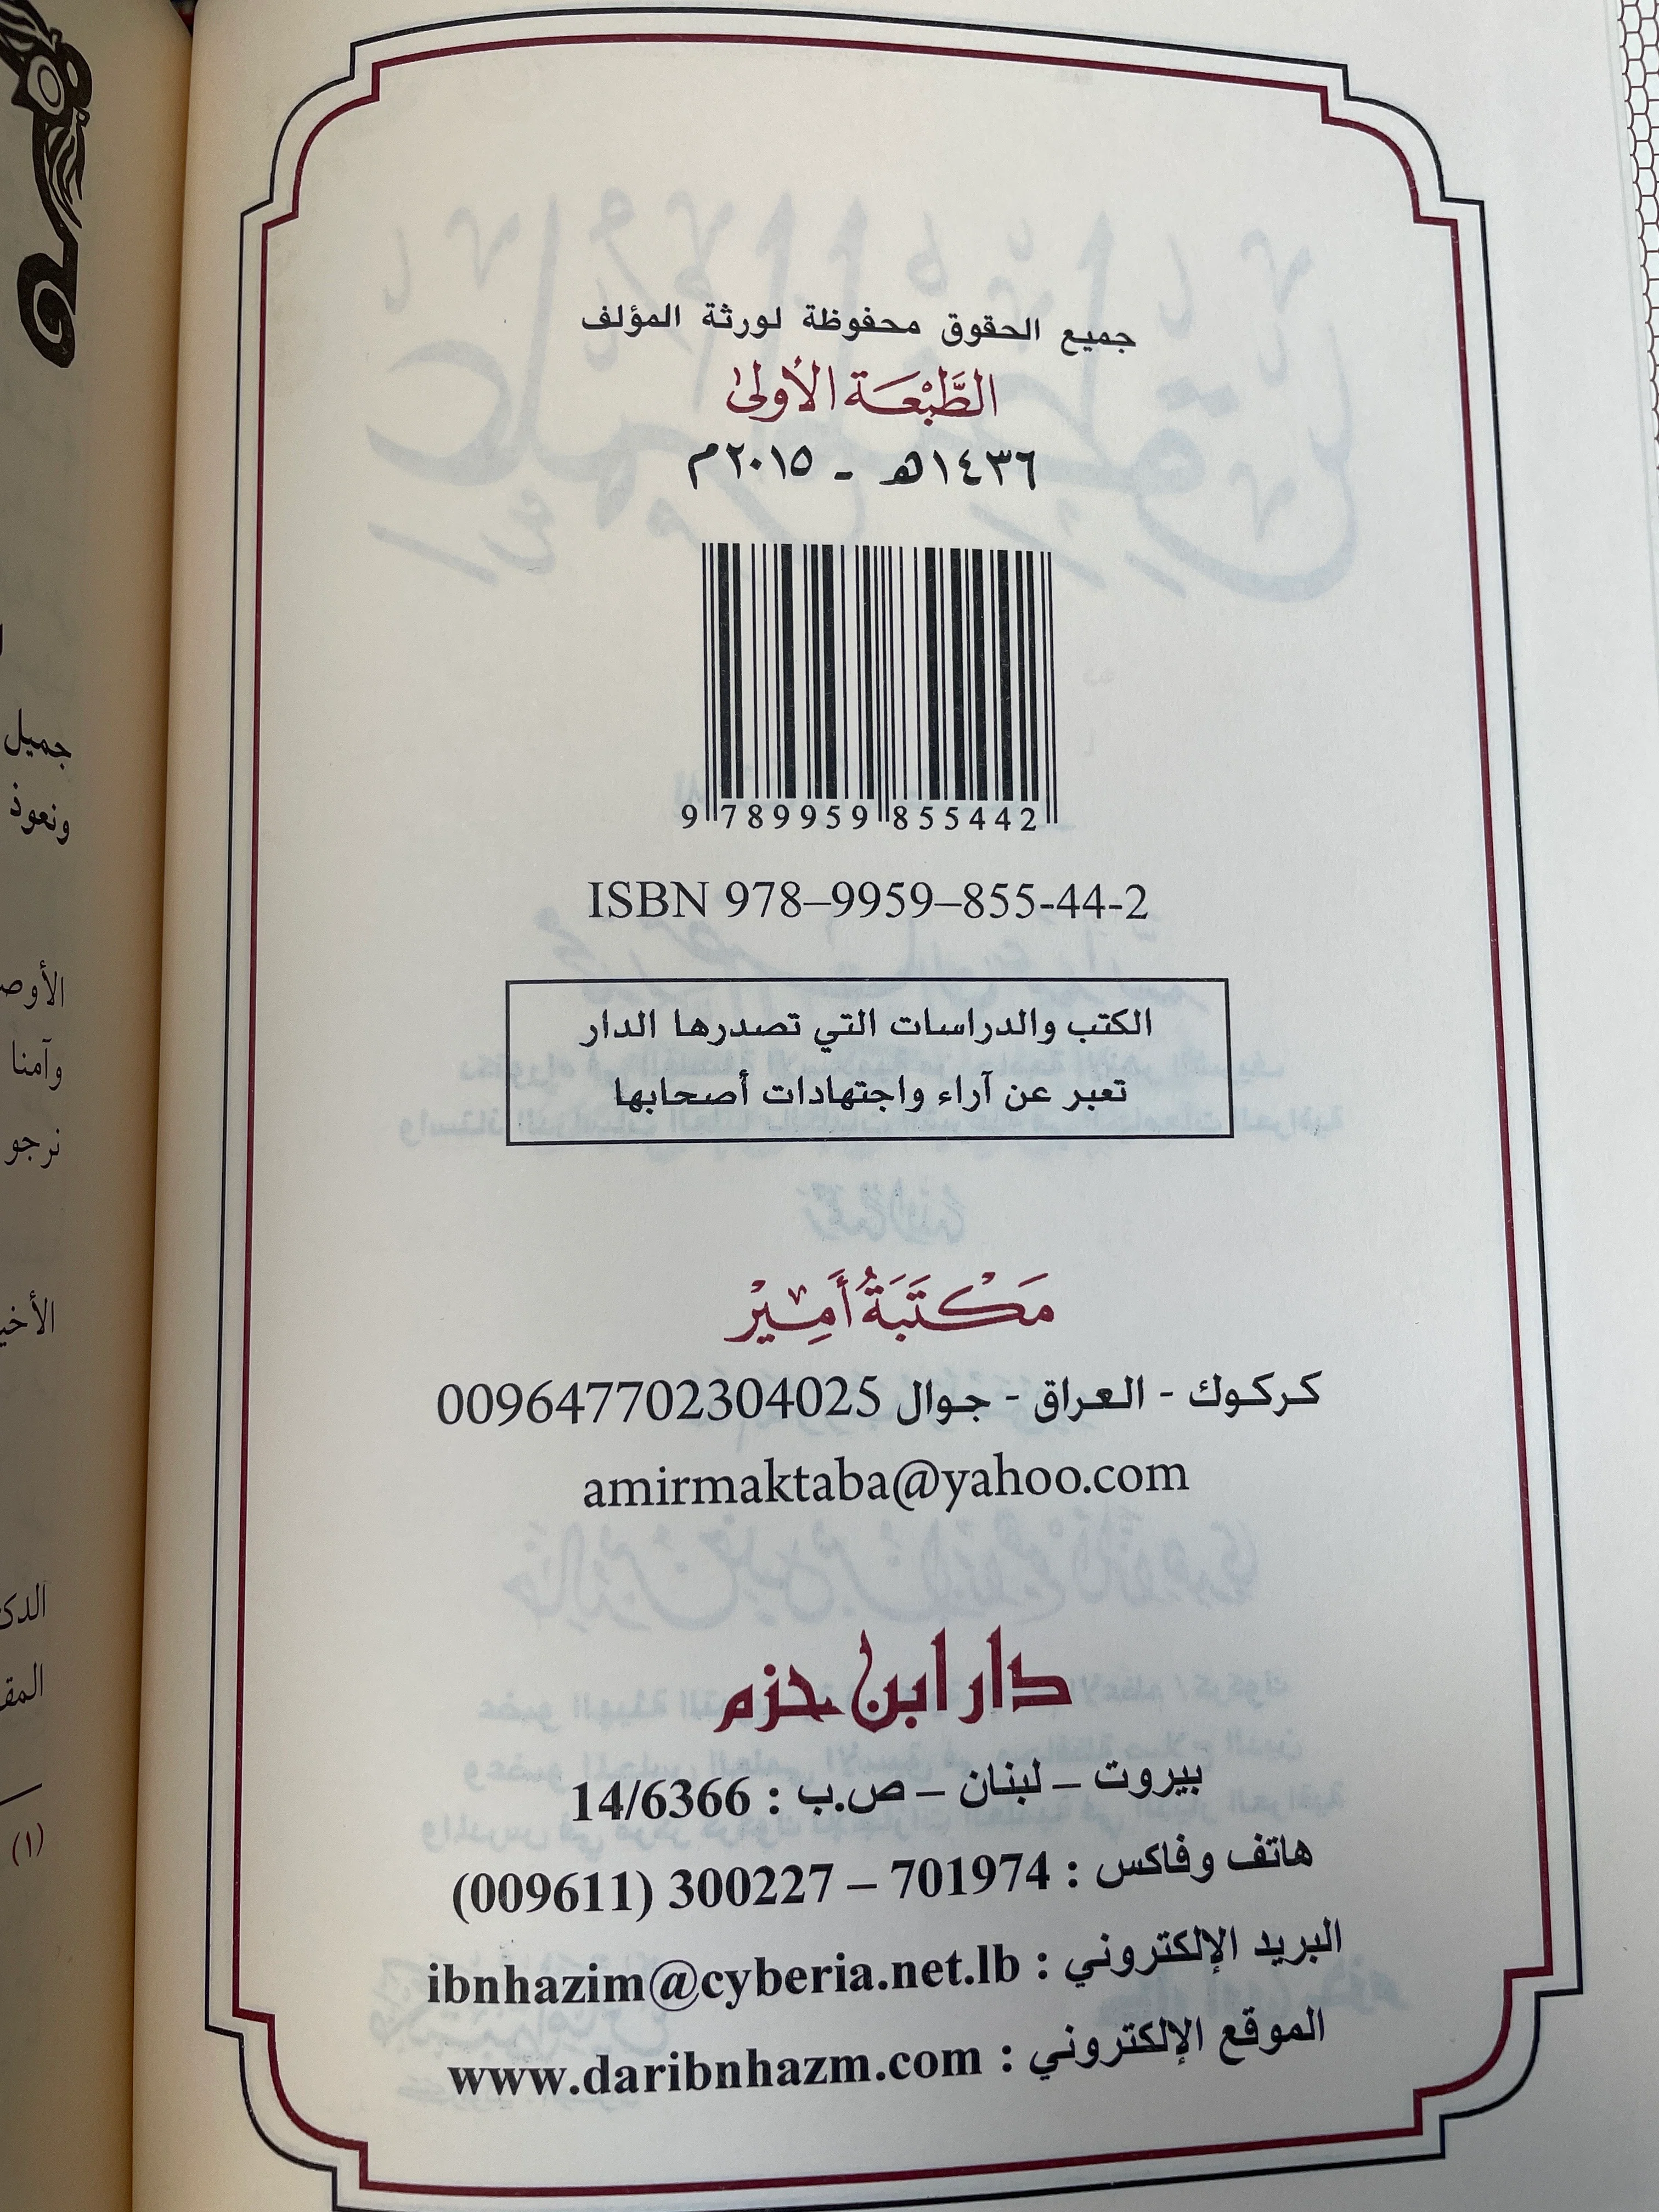 جميع الحقوق محفوظة لورثة المؤلف
الطَّبْعَة الأُولىٰ
١٤٣٦هـ - ٢٠١٥م
9 789959 855442
ISBN 978–9959–855-44-2
الكتب والدراسات التي تصدرها الدار
تعبر عن آراء واجتهادات أصحابها
مَكْتَبَةُ أَمِيْر
كركوك - العراق - جوال 009647702304025
amirmaktaba@yahoo.com
دار ابن حزم
بيروت – لبنان – ص.ب : 14/6366
هاتف وفاكس : 701974 – 300227 (009611)
البريد الإلكتروني : ibnhazim@cyberia.net.lb
الموقع الإلكتروني : www.daribnhazm.com
جميل
ونعوذ
وآمنا
نرجو
(١)